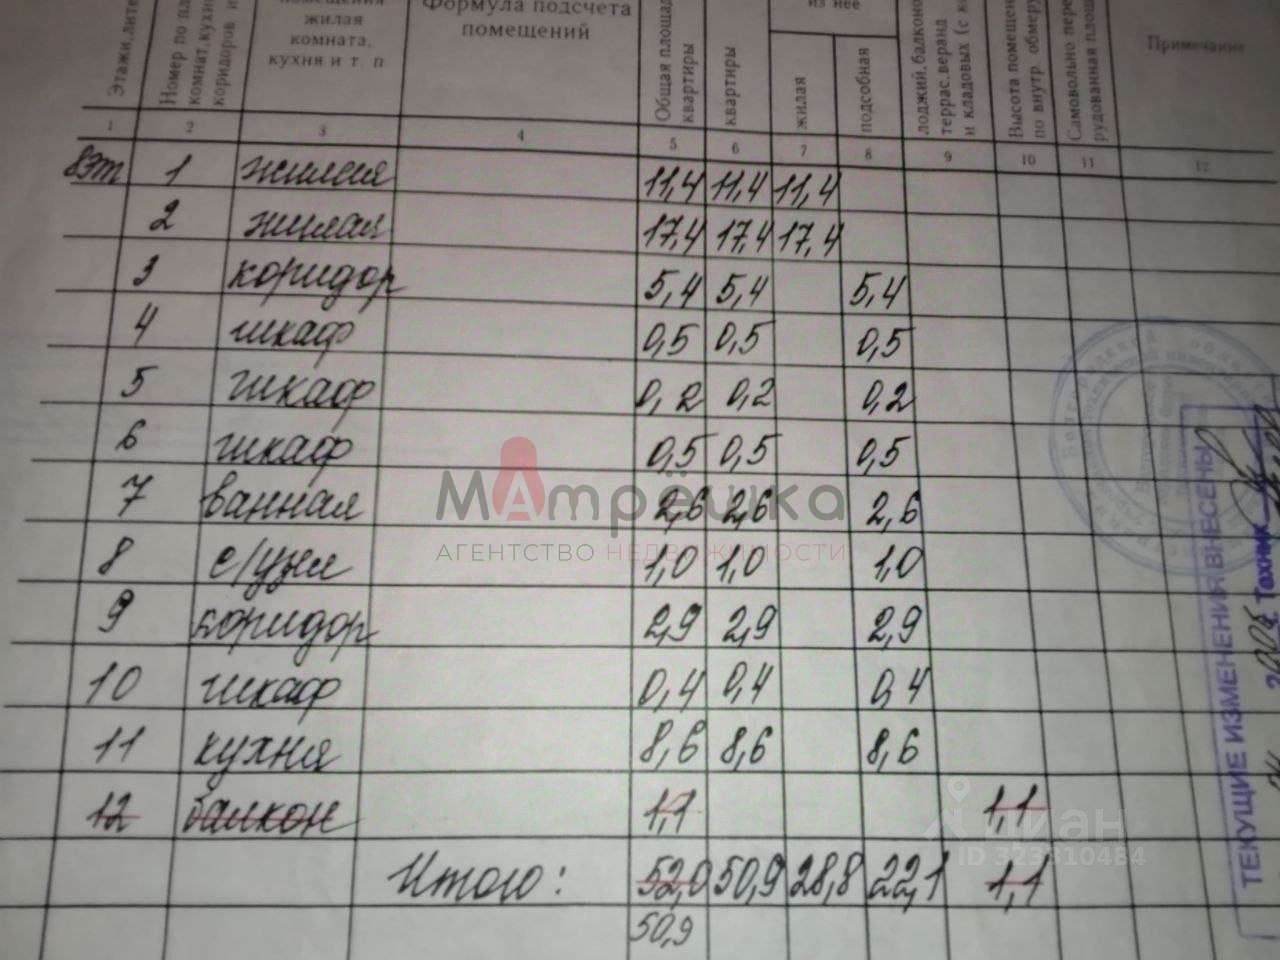 Этажи, лите
Номер по пл
комнат, кухн
коридоров и
помещения
жилая
комната,
кухня и т. п
Формула подсчета
помещений
Общая площад
квартиры
квартиры
из нее
жилая
подсобная
лоджий, балконо
террас, веранд
и кладовых (с к
Высота помещен
по внутр. обмеру
Самовольно пере
рудованная площ
Примечание
1 2 3 4 5 6 7 8 9 10 11 12
8эт 1 жилая 11,4 11,4 11,4
2 жилая 17,4 17,4 17,4
3 коридор 5,4 5,4 5,4
4 шкаф 0,5 0,5 0,5
5 шкаф 0,2 0,2 0,2
6 шкаф 0,5 0,5 0,5
7 ванная 2,6 2,6 2,6
8 с/узел 1,0 1,0 1,0
9 коридор 2,9 2,9 2,9
10 шкаф 0,4 0,4 0,4
11 кухня 8,6 8,6 8,6
12 балкон 1,1 1,1
Итого: 52,0 50,9 28,8 22,1 1,1
50,9
Матрёшка
АГЕНТСТВО НЕДВИЖИМОСТИ
циан
ID 323810484
ТЕКУЩИЕ ИЗМЕНЕНИЯ ВНЕСЕНЫ
Техник